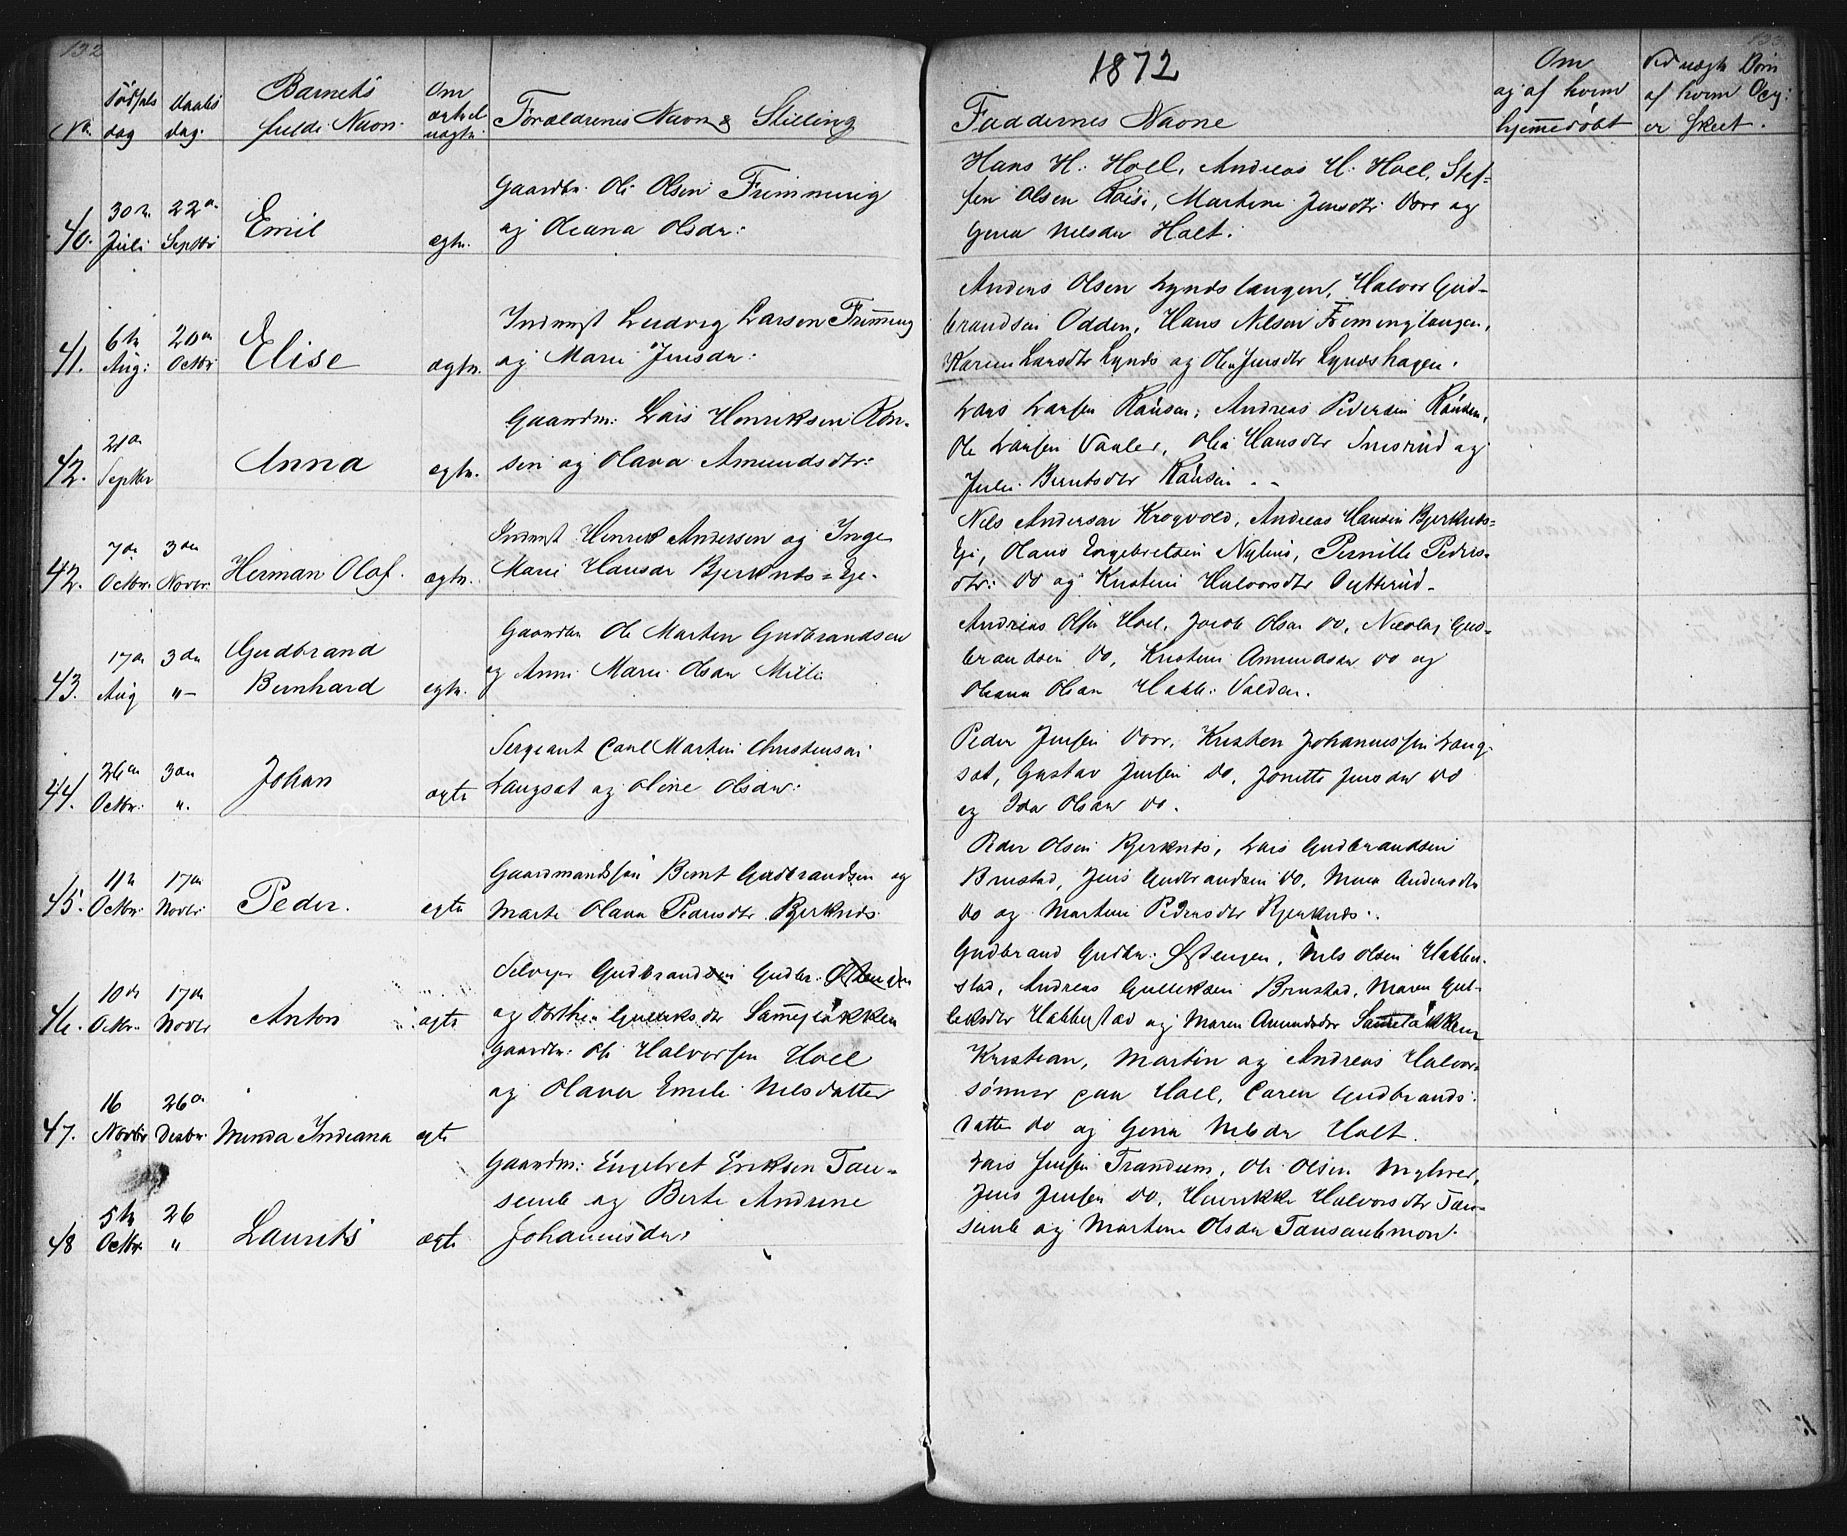 132
1872
No.
Fødsels
dag
Daabs
dag.
Barnets
fulde Navn.
Om
ægte el.
uægte.
Forældrenes Navn & Stilling
Faddernes Navne
Om
og af hvem
hjemmedøbt
Ved uægte Børn
af hvem Opg:
er skeet.
40.
30te
Juli
22de
Septbr
Emil
egte.
Gaardbr: Ole Olsen Frimmerig
og Oleana Olsdtr:
Hans H: Hoel, Andreas H: Hoel, Stef=
fen Olsen, Martine Jensdtr: Dorr og
Gina Nilsdtr Holt.
41.
6te
Aug:
20de
Octbr
Elise
ægte.
Inderst Ludvig Larsen
og Marie Jensdtr:
Anders Olsen Lyndshaugen, Halvor Gud-
brandsen Odden, Hans Nilsen
Karen Larsdtr Lynds og Olea Jensdtr Lyndshagen.
42.
21de
Septbr
Anna
egte.
Gaardm: Lars Henriksen Røn-
sen og Olava Amundsdtr:
Lars Larsen Rønsen, Andreas Pedersen Rønsen,
Ole Larsen Vaaler, Olea Hansdtr Snesrud og
Julie Berntsdtr Rønsen -
42.
7de
Octbr.
3die
Novbr.
Herman Olaf.
ægte.
Inderst Henrik Andersen og Inge
Marie Hansdtr Bjerknes=Eje.
Nils Andersen Krogvold, Andreas Hansen Bjerknes=
Eje, Hans Engebretsen Nylins, Pernille Peders=
dtr: do og Kristine Halvorsdtr
43.
17de
Aug
3die
"-
Gudbrand
Bernhard
egte.
Gaardbr Ole Martin Gudbrandsen
og Anne Marie Olsdtr Mille
Andreas Olsen Hoel, Jacob Olsen do, Nicolay Gud=
brandsen do, Kristine Amundsdtr do og
Oleana Olsdtr
44.
26de
Octbr.
3die
".
Johan
ægte
Sergeant Carl Martin Christensen
Langsæt og Oline Olsdtr:
Peder Jensen Dorr, Kristen Johannessen Lang-
sæt, Gustav Jensen do, Jonette Jensdtr do
og Ida Olsdtr do.
45.
11te
Octbr.
17de
Novbr.
Peder.
egte
Gaardmandssøn Bernt Gudbrandsen og
Marte Olava Pedersdtr Bjerknes
Peder Olsen Bjerknes, Lars Gudbrandsen
Brustad, Jens Gudbrandsen do, Maren Andersdtr
do og Martine Pedersdtr Bjerknes.
46.
10de
Octbr.
17de
Novbr
Anton
ægte
Selvejer Gudbrandsen Gudbr:
og Dorthea Gulliksdtr
Gudbrand Gudbr: Østengen, Nils Olsen Habber-
stad, Andreas Gulliksen Brustad, Maren Gul-
liksdtr Habberstad og Maren Amundsdtr
47.
16
Novbr
26de
Decbr.
Minda Indiana
egte
Gaardbr: Ole Halvorsen Hoel
og Olava Emilie Nilsdatter
Kristian, Martin og Andreas Halvor=
sønner paa Hoel, Caren Gudbrands:
datter do og Gina Nilsdtr Holt.
48
5te
Octbr.
26
"
Laurits
ægte
Gaardm: Engebret Eriksen Tan=
semb og Berte Andrine
Johannesdtr:
Lars Jensen Trandum, Ole Olsen Myhrer,
Jens Jensen do, Henrikke Halvorsdtr Tan=
semb og Martine Olsdtr Tansembmon.